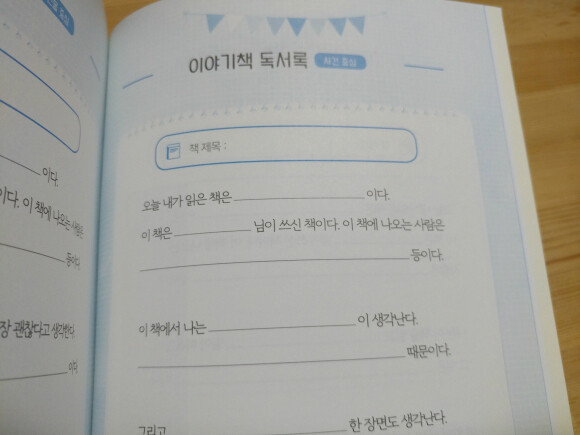 이야기책 독서록 사건 중심
책 제목 :
오늘 내가 읽은 책은 이다.
이 책은 님이 쓰신 책이다. 이 책에 나오는 사람은
등이다.
이 책에서 나는 이 생각난다.
때문이다.
그리고 한 장면도 생각난다.
이다.
이다. 이 책에 나오는 사람은
등이다.
장 괜찮다고 생각한다.